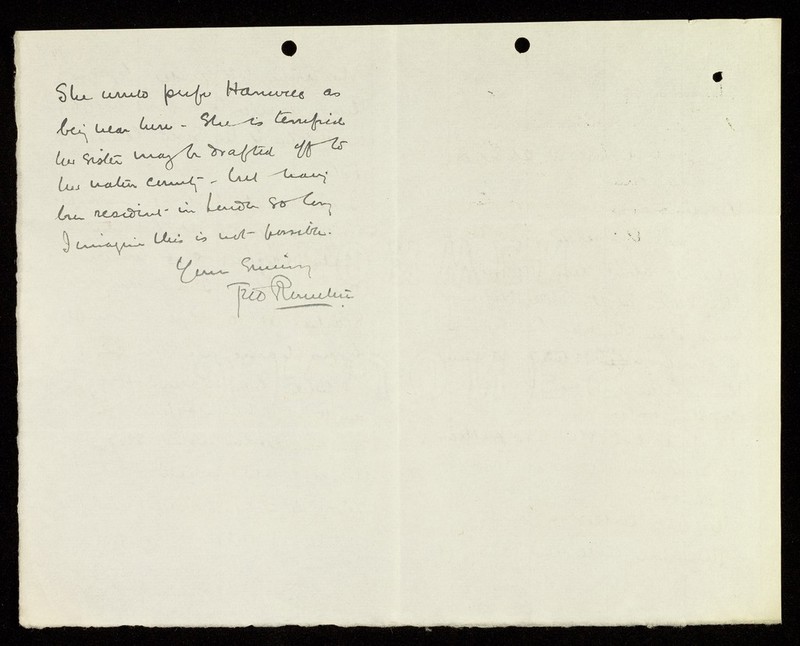 She would prefer Hanwell as
being near here - She is terrified
her sister may be drafted off to
her native county - but having
been resident in London so long
I imagine this is not possible.
Yours Sincerely